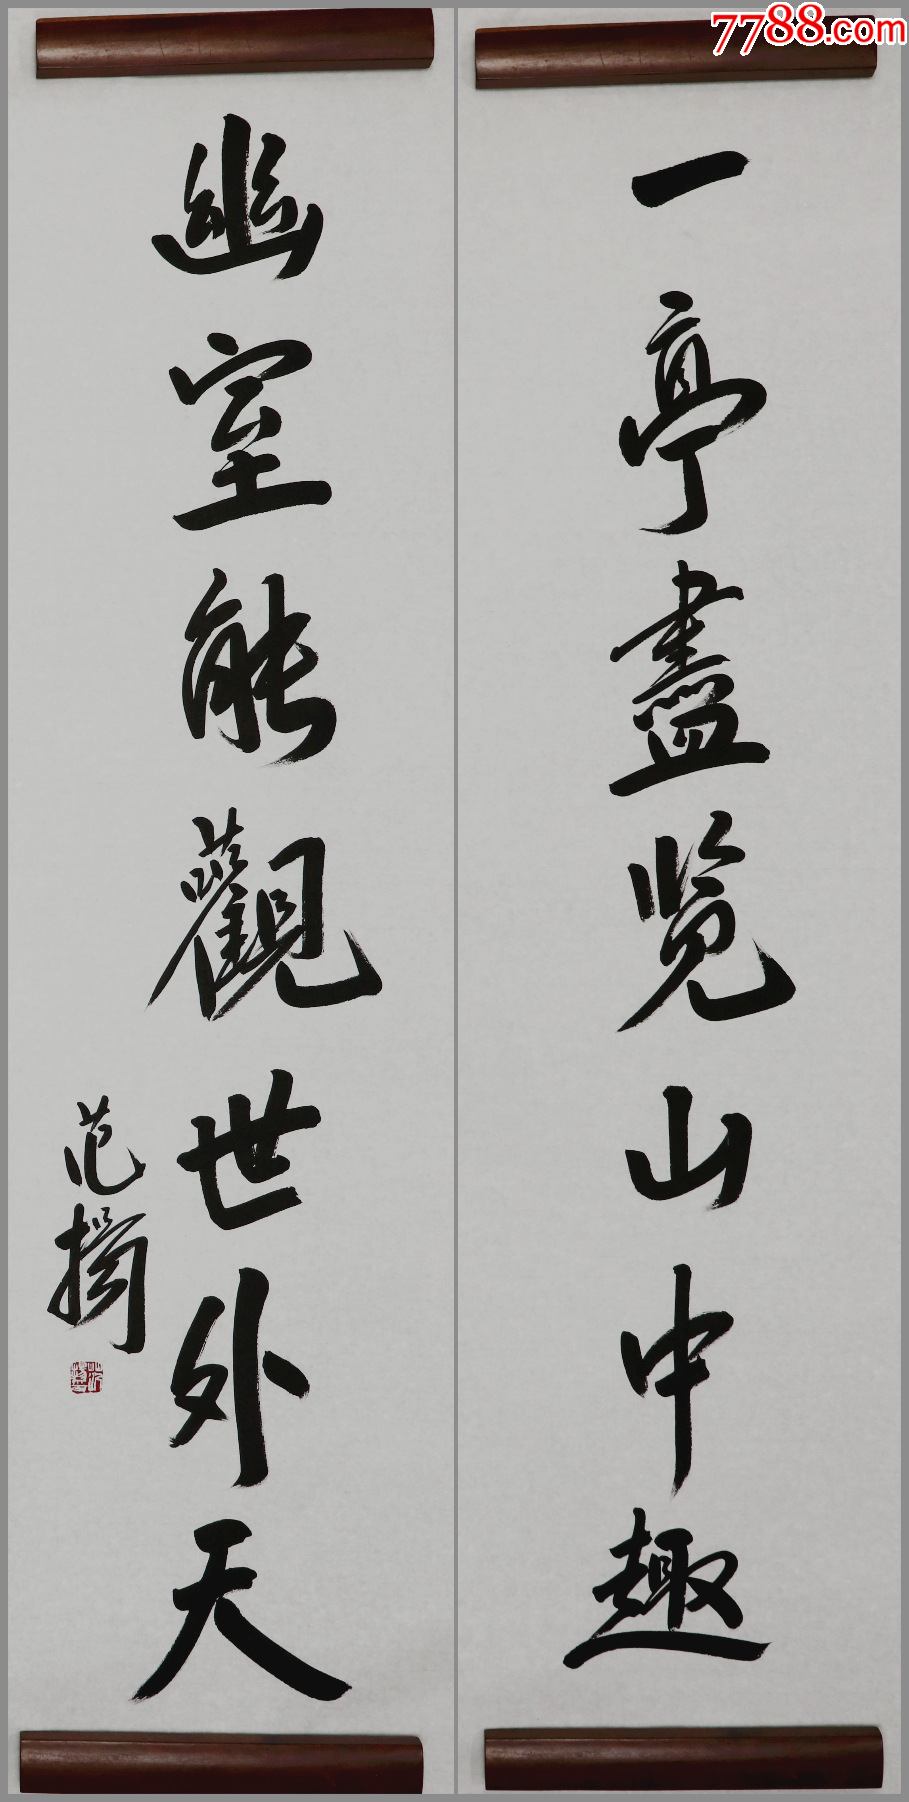 一亭盡览山中趣
幽室能觀世外天
7788.com